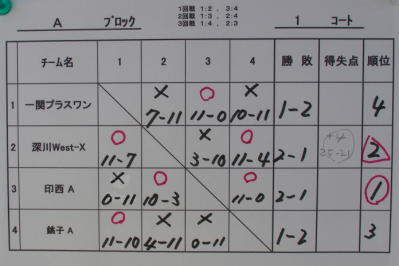 1回戦 1:2 . 3:4
2回戦 1:3 . 2:4
3回戦 1:4 . 2:3
A ブロック 1 コート
チーム名 1 2 3 4 勝 敗 得失点 順位
1 一関プラスワン × 7-11 ○ 11-0 × 10-11 1-2 4
2 深川West-X ○ 11-7 × 3-10 ○ 11-4 2-1 +4 25-21 2
3 印西 A × 0-11 ○ 10-3 ○ 11-0 2-1 1
4 銚子 A ○ 11-10 × 4-11 × 0-11 1-2 3